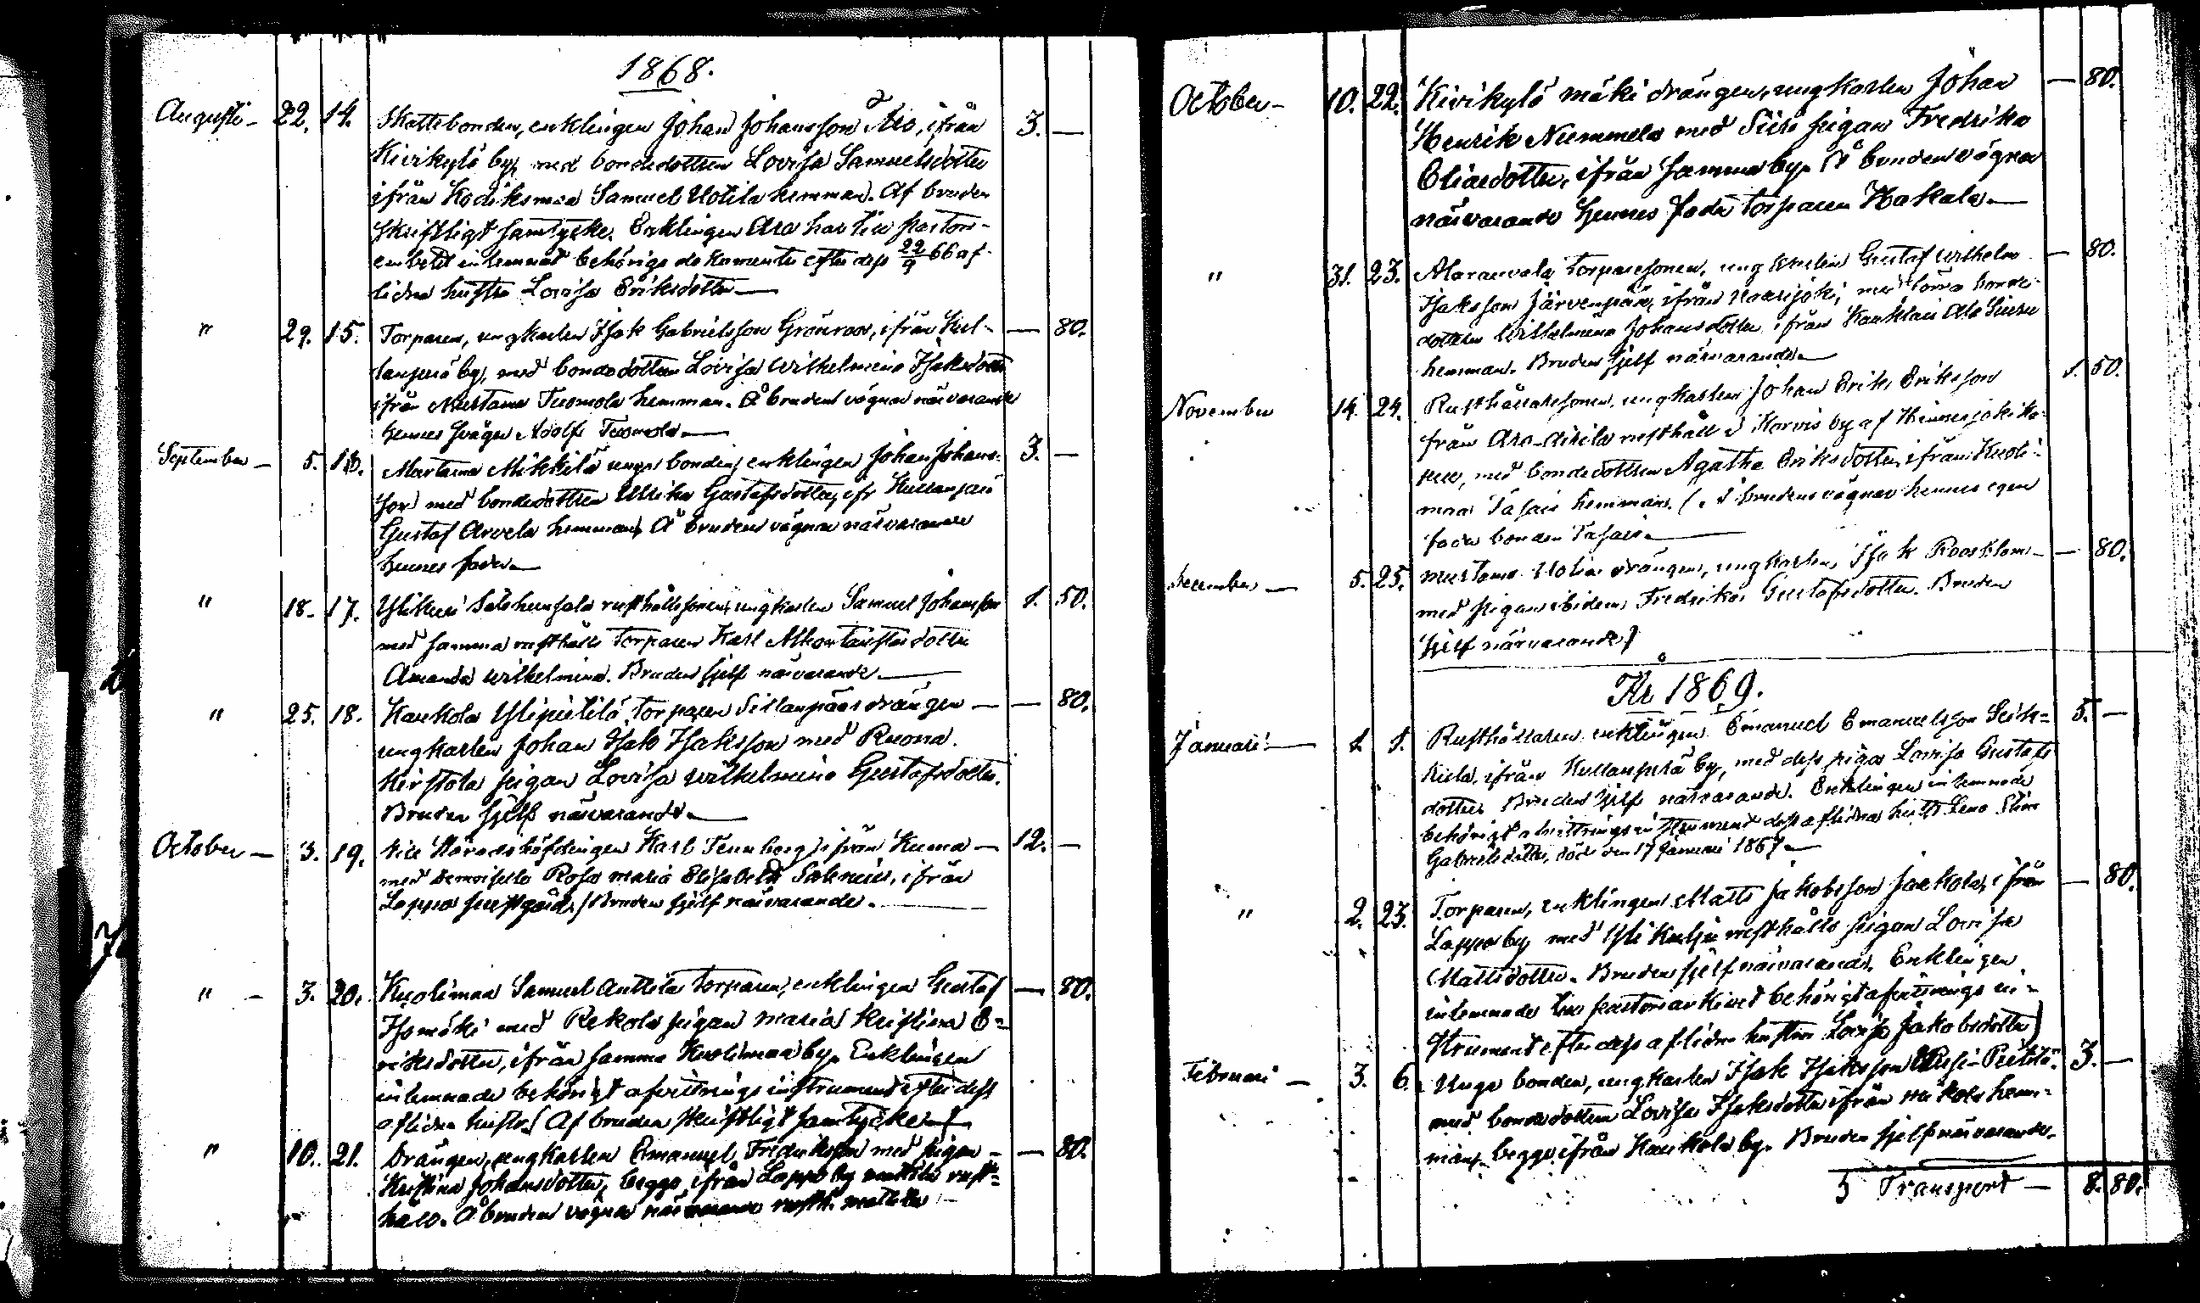 1868.
Augusti - 22. 14. Skattebonden, enklingen Johan Johansson Aro, ifrån 3. —
Kivikylä by, med bondedottren Lovisa Samuelsdotter
ifrån Kodiksmaa Samuel Uotila hemman. Af bruden
skriftligt samtycke. Enklingen Aro har till pastors-
embetet inlemnat behöriga dokumenter efter dess 22/9 66 af-
lidna hustru Lovisa Eriksdotter —
" 29. 15. Torparen, ungkarlen Isak Gabrielsson Grönroos, ifrån Kul- — 80.
lanperä by, med bondedottren Lovisa Wilhelmina Isaksdotter
ifrån Mustama Tuomola hemman. Å brudens vägnar närvarande
hennes svåger Adolf Tuomola —
September — 5. 16. Mustama Mikkilä unga bonden, enklingen Johan Johans- 3. —
son med bondedottren Ulrika Gustafsdotter, ifr Kullanperä
Gustaf Arvela hemman, Å brudens vägnar närvarande
hennes fader —
" 18. 17. rusthållssonen, ungkarlen Samuel Johansson 1. 50.
med samma rusthålls torparen Karl dotter
Amanda Wilhelmina. Bruden sjelf närvarande. —
" 25. 18. Kaukola Ylipietilä torparen Sillanpääs drängen — — 80.
ungkarlen Johan Isak Isaksson med Ruona
Kirstola pigan Lovisa Wilhelmina Gustafsdotter.
Bruden sjelf närvarande. —
October — 3. 19. Vice Häradshöfdingen Karl Tennberg, ifrån Kumo — 12. —
med Demoiselle Rosa Maria Elisabeth Salenius, ifrån
Lappo prestgård, Bruden sjelf närvarande. —
" - 3. 20. Kuolimaa Samuel Anttila torparen, enklingen Gustaf — 80.
Isomäki med Rekola pigan Maria Kristina E-
riksdotter, ifrån samma Kuolimaa by. Enklingen
inlemnade behörigt afvittrings instrument efter dess
aflidna hustru. Af bruden skriftligt samtycke.
" 10. 21. Drängen, ungkarlen Emanuel Fredriksson med pigan — — 80.
Kristina Johansdotter, begge ifrån Lappo by rust-
håll. Å brudens vägnar närvarande
October - 10. 22. Kivikylä mäki drängen, ungkarlen Johan — 80.
Henrik Niemmelä med Siiri pigan Fredrika
Eliasdotter, ifrån samma by. Å brudens vägnar
närvarande hennes fader torparen Hakala. —
" 31. 23. torparesonen, ungkarlen Gustaf Wilhelm — 80.
Isaksson Järvenpää, ifrån med bonde-
dottren Wilhelmina Johansdotter ifrån
hemman. Bruden sjelf närvarande —
November 14. 24. Rusthållaresonen, ungkarlen Johan Erik Eriksson 1. 50.
från rusthåll i Korvis by af Hinnerjoki ka-
pell, med bondedottren Agatha Eriksdotter, ifrån Kuoli-
maa Tasais hemman. Å brudens vägnar hennes egen
fader bonden Tasais. —
December — 5. 25. Mustama Uotin drängen, ungkarlen Isak Roosblom — — 80.
med pigan ibidem Fredrika Gustafsdotter. Bruden
sjelf närvarande.
År 1869.
Januari — 1. 1. Rusthållaren enklingen Emanuel Emanuelsson 5. —
ifrån Kullanperä by, med dess piga Lovisa Gustafs
dotter. Bruden sjelf närvarande. Enklingen inlemnade
behörigt afvittringsinstrument dess aflidna hustru Lena
Gabrielsdotter, död den 17 Januari 1867 —
" 2. 23. Torparen, enklingen Matts Jakobsson Jaakola, ifrån — 80.
Lappo by med Yli rusthålls pigan Lovisa
Mattsdotter. Bruden sjelf närvarande. Enklingen
inlemnade till pastorsarkivet behörigt afvittrings in-
strument efter dess aflidna hustru Lovisa Jakobsdotter
Februari — 3. 6. Unga bonden, ungkarlen Isak Isaksson Uusi-Pietilä. 3. —
med bondedottren Lovisa Isaksdotter ifrån hem-
man, begge ifrån Kaukola by. Bruden sjelf närvarande.
Transport — 8. 80.